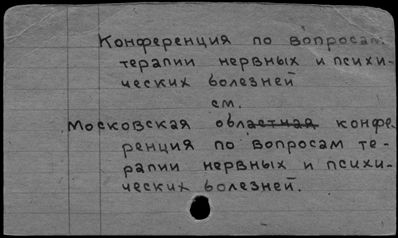 Конференция по вопросам
терапии нервных и психи-
ческих болезней
см.
Московская областная конфе-
ренция по вопросам те-
рапии нервных и психи-
ческих болезней.